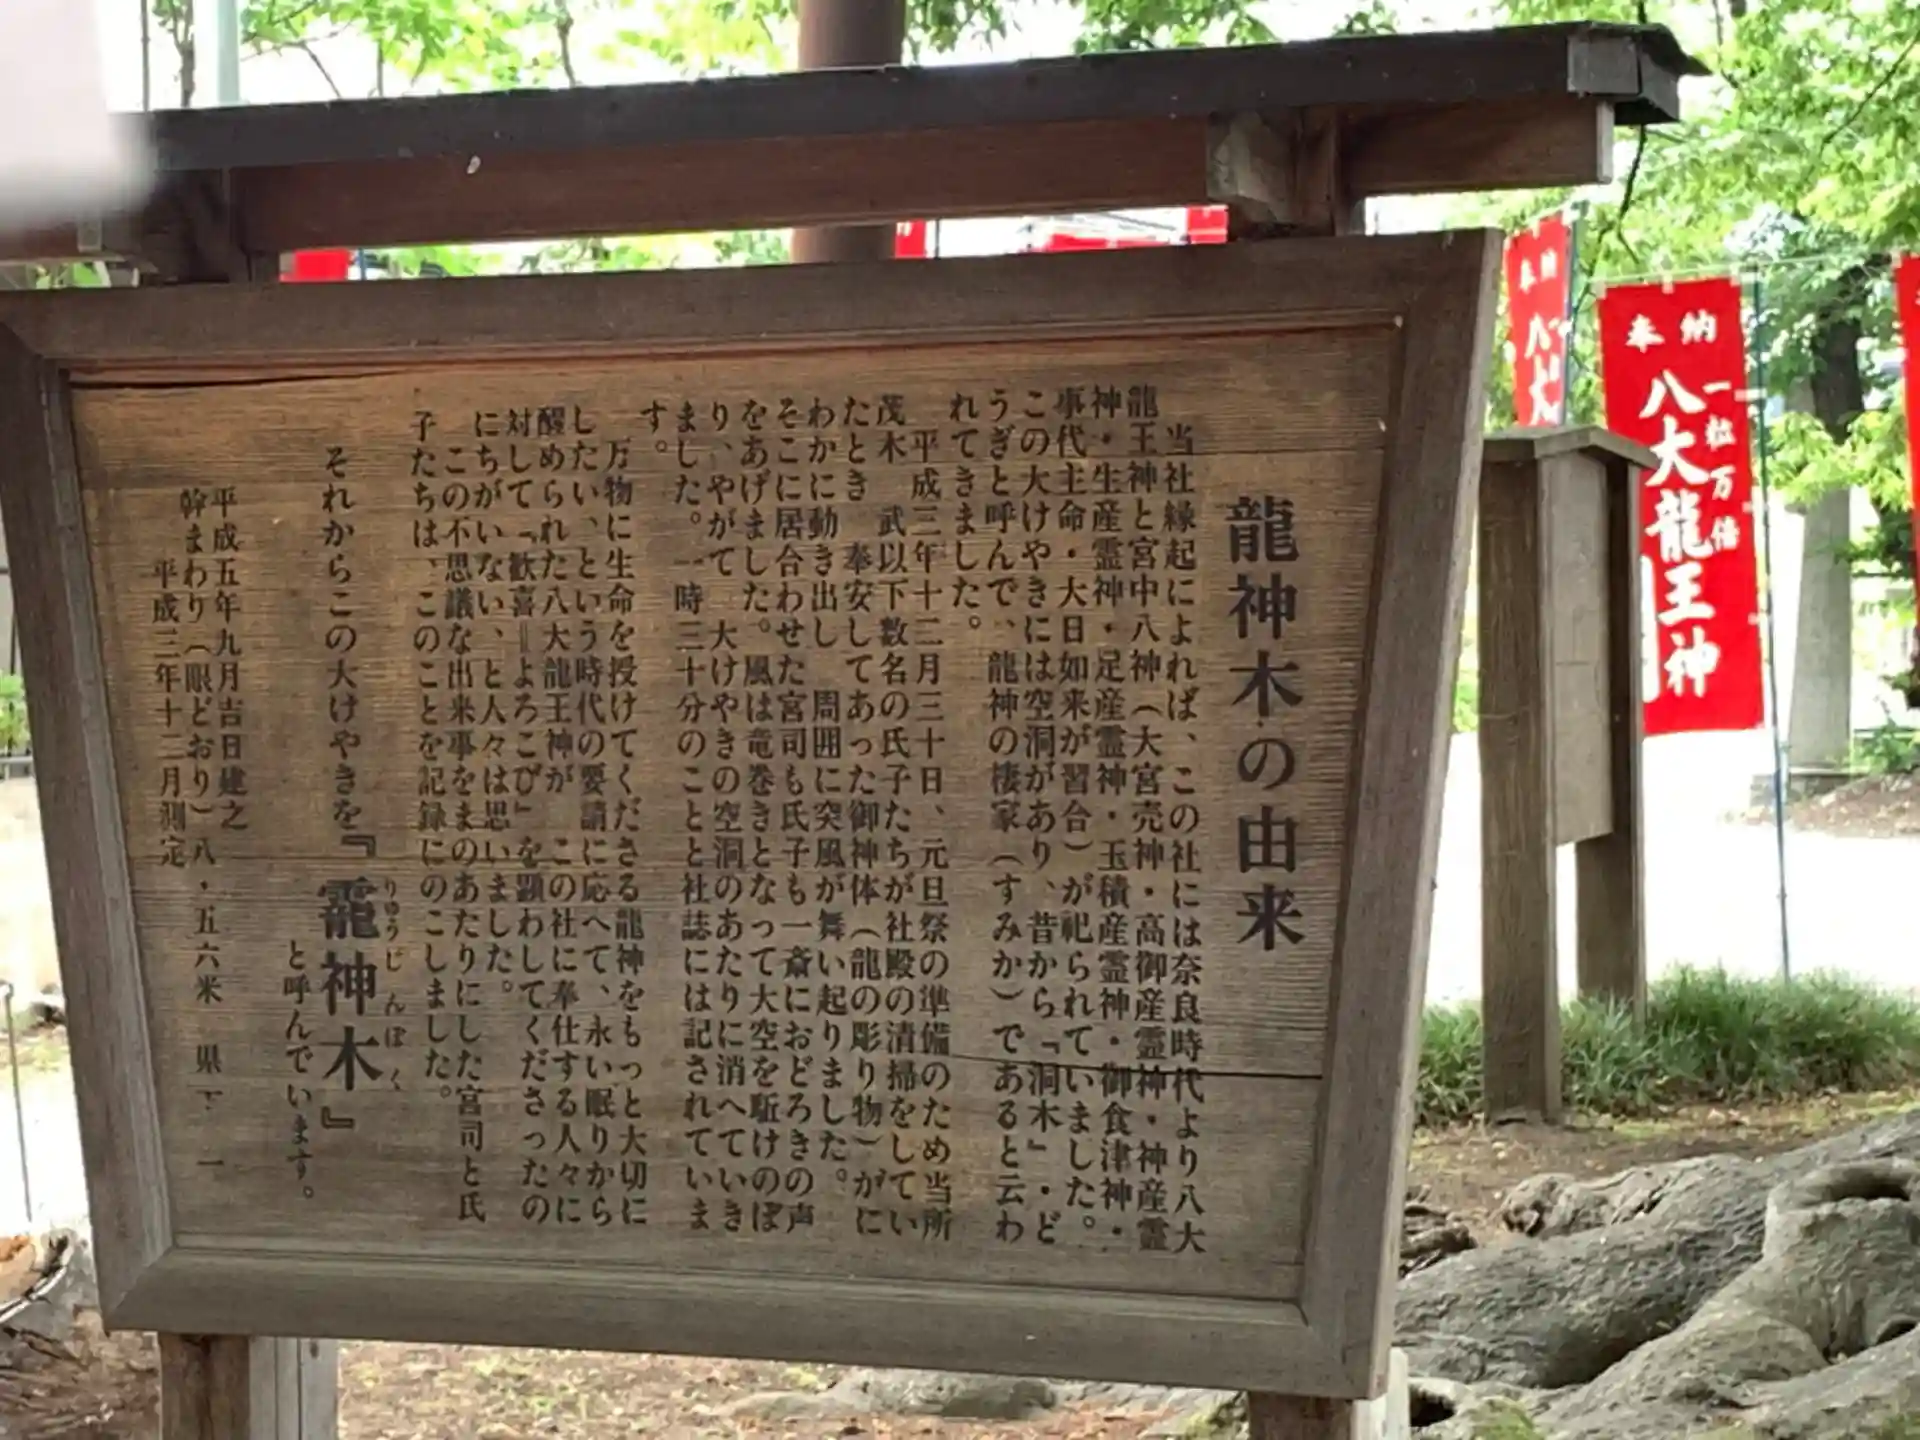 龍神木の由来
当社縁起によれば、この社には奈良時代より八大
龍王神と宮中八神（大宮売神・高御産霊神・神産霊
神・生産霊神・足産霊神・玉積産霊神・御食津神・
事代主命・大日如来が習合）が祀られていました。
この大けやきには空洞があり、昔から「洞木」・ど
うぎと呼んで、龍神の棲家（すみか）であると云わ
れてきました。
平成三年十二月三十日、元旦祭の準備のため当所
茂木 武以下数名の氏子たちが社殿の清掃をしてい
たとき 奉安してあった御神体（龍の彫り物）がに
わかに動き出し 周囲に突風が舞い起りました。
そこに居合わせた宮司も氏子も一斎におどろきの声
をあげました。風は竜巻きとなって大空を駈けのぼ
り、やがて 大けやきの空洞のあたりに消へていき
ました。一時三十分のことと社誌には記されていま
す。
万物に生命を授けてくださる龍神をもっと大切に
したい、という時代の要請に応へて、永い眠りから
醒められた八大龍王神が この社に奉仕する人々に
対して『歓喜＝よろこび』を顕わしてくださったの
にちがいない、と人々は思いました。
この不思議な出来事をまのあたりにした宮司と氏
子たちは、このことを記録にのこしました。
それからこの大けやきを『龗神木』
りゅうじんぼく
と呼んでいます。
平成五年九月吉日建之
幹まわり（眼どおり）八・五六米 県下一
平成三年十二月測定
奉納
八大
奉納
一粒万倍
八大龍王神